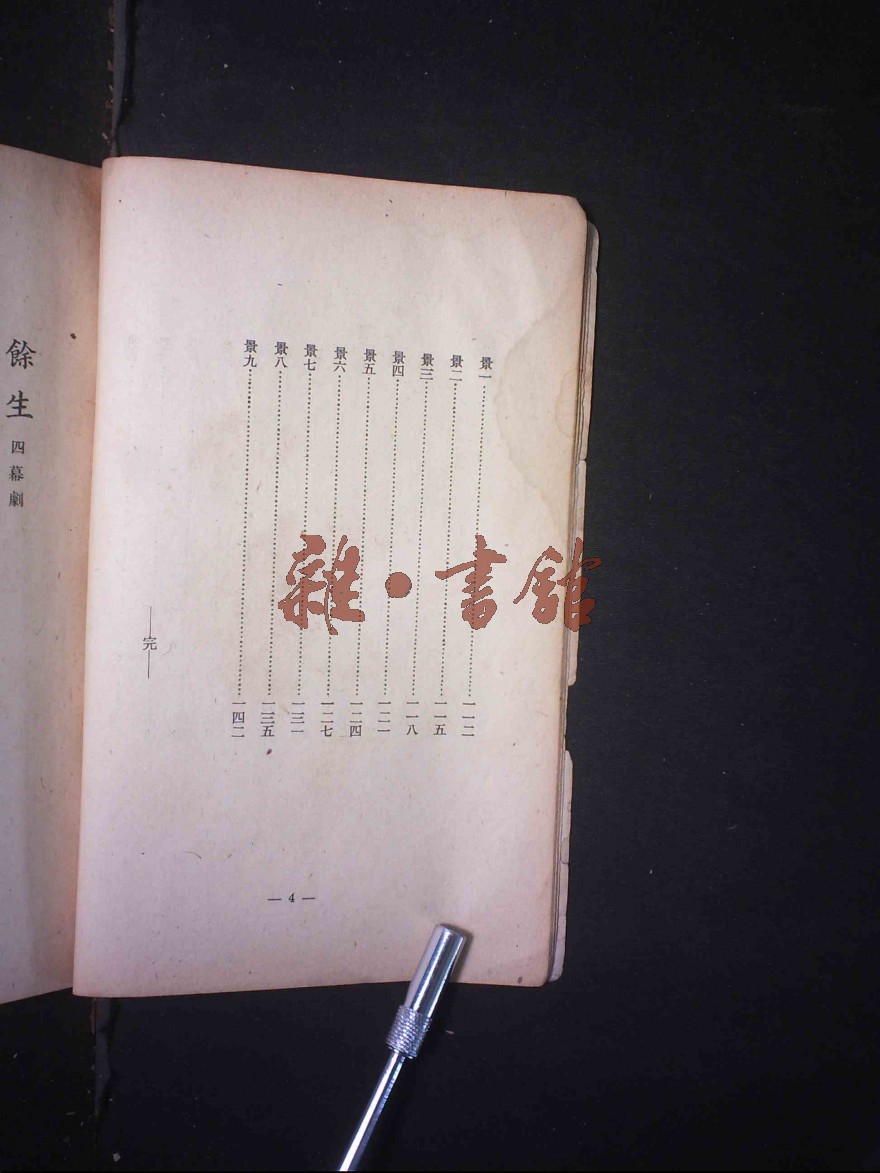 景一⋯⋯⋯⋯一一二
景二⋯⋯⋯⋯一一五
景三⋯⋯⋯⋯一一八
景四⋯⋯⋯⋯一二一
景五⋯⋯⋯⋯一二四
景六⋯⋯⋯⋯一二七
景七⋯⋯⋯⋯一三一
景八⋯⋯⋯⋯一三五
景九⋯⋯⋯⋯一四二
——完——
— 4 —
餘生 四幕劇
雜·書館